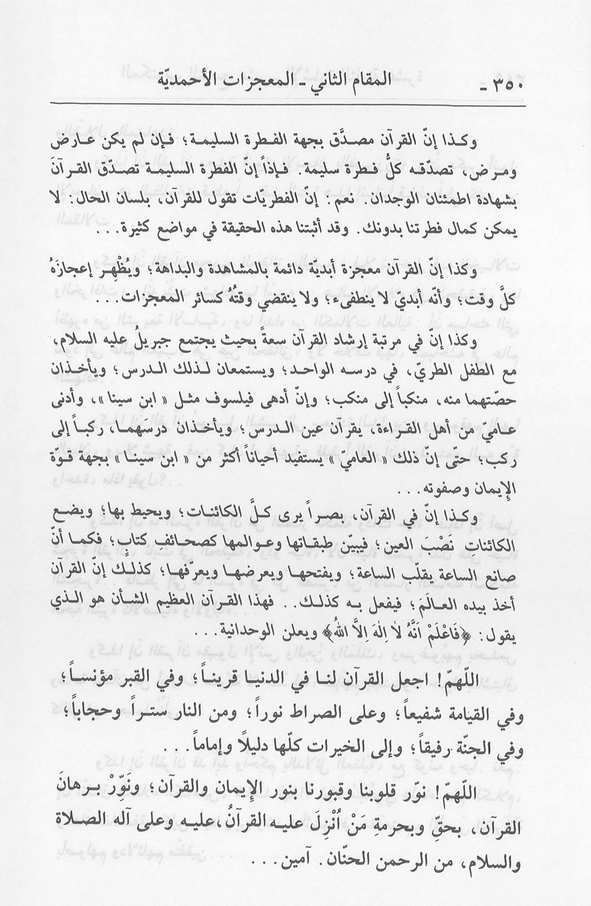 ٣٥٠ - المقام الثاني - المعجزات الأحمديّة
وكذا إنّ القرآن مصدَّق بجهة الفطرة السليمة؛ فإن لم يكن عارض
ومرض، تصدّقه كلُّ فطرة سليمة. فإذاً إنّ الفطرة السليمة تصدّق القرآنَ
بشهادة اطمئنان الوجدان. نعم: إنّ الفطريّات تقول للقرآن، بلسان الحال: لا
يمكن كمال فطرتنا بدونك. وقد أثبتنا هذه الحقيقة في مواضع كثيرة...
وكذا إنّ القرآن معجزة أبديّة دائمة بالمشاهدة والبداهة؛ ويُظْهِر إعجازَهُ
كلَّ وقت؛ وأنّه أبديّ لا ينطفىء؛ ولا ينقضي وقتُهُ كسائر المعجزات...
وكذا إنّ في مرتبة إرشاد القرآن سعةً بحيث يجتمع جبريلُ عليه السلام،
مع الطفل الطريّ، في درسه الواحد؛ ويستمعان لذلك الدرس؛ ويأخذان
حصّتهما منه، منكباً إلى منكب؛ وإنّ أدهى فيلسوف مثل «ابن سينا»، وأدنى
عاميّ من أهل القراءة، يقرآن عين الدرس؛ ويأخذان درسَهما، ركباً إلى
ركب؛ حتّى إنّ ذلك «العاميّ» يستفيد أحياناً أكثر من «ابن سينا» بجهة قوّة
الإيمان وصفوته...
وكذا إنّ في القرآن، بصراً يرى كلَّ الكائنات؛ ويحيط بها؛ ويضع
الكائناتِ نَصْبَ العين؛ فيبيّن طبقاتها وعوالمها كصحائفِ كتابٍ؛ فكما أنّ
صانع الساعة يقلّب الساعة؛ ويفتحها ويعرضها ويعرّفها؛ كذلك إنّ القرآن
أخذ بيده العالَمَ؛ فيفعل به كذلك.. فهذا القرآن العظيم الشأن هو الذي
يقول: ﴿فَاعْلَمْ اَنَّهُ لاَ اِلهَ اِلاَّ اللهُ﴾ ويعلن الوحدانية...
اللّهمّ! اجعل القرآن لنا في الدنيا قريناً؛ وفي القبر مؤنساً؛
وفي القيامة شفيعاً؛ وعلى الصراط نوراً؛ ومن النار ستراً وحجاباً؛
وفي الجنّة رفيقاً؛ وإلى الخيرات كلّها دليلاً وإماماً...
اللّهمّ! نوّر قلوبنا وقبورنا بنور الإيمان والقرآن؛ ونَوِّرْ برهانَ
القرآن، بحقِّ وبحرمةِ مَنْ أُنْزِلَ عليه القرآنُ، عليه وعلى آله الصلاة
والسلام، من الرحمن الحنّان. آمين...